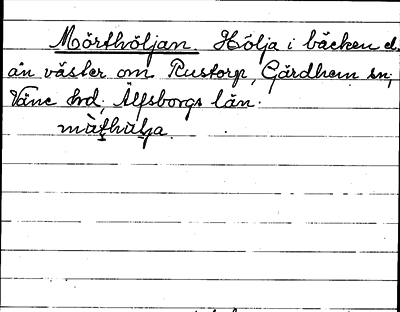 Mörthöljan. Hölja i bäcken el.
ån väster om Rustorp, Gärdhem sn,
Väne hd, Älfsborgs län.